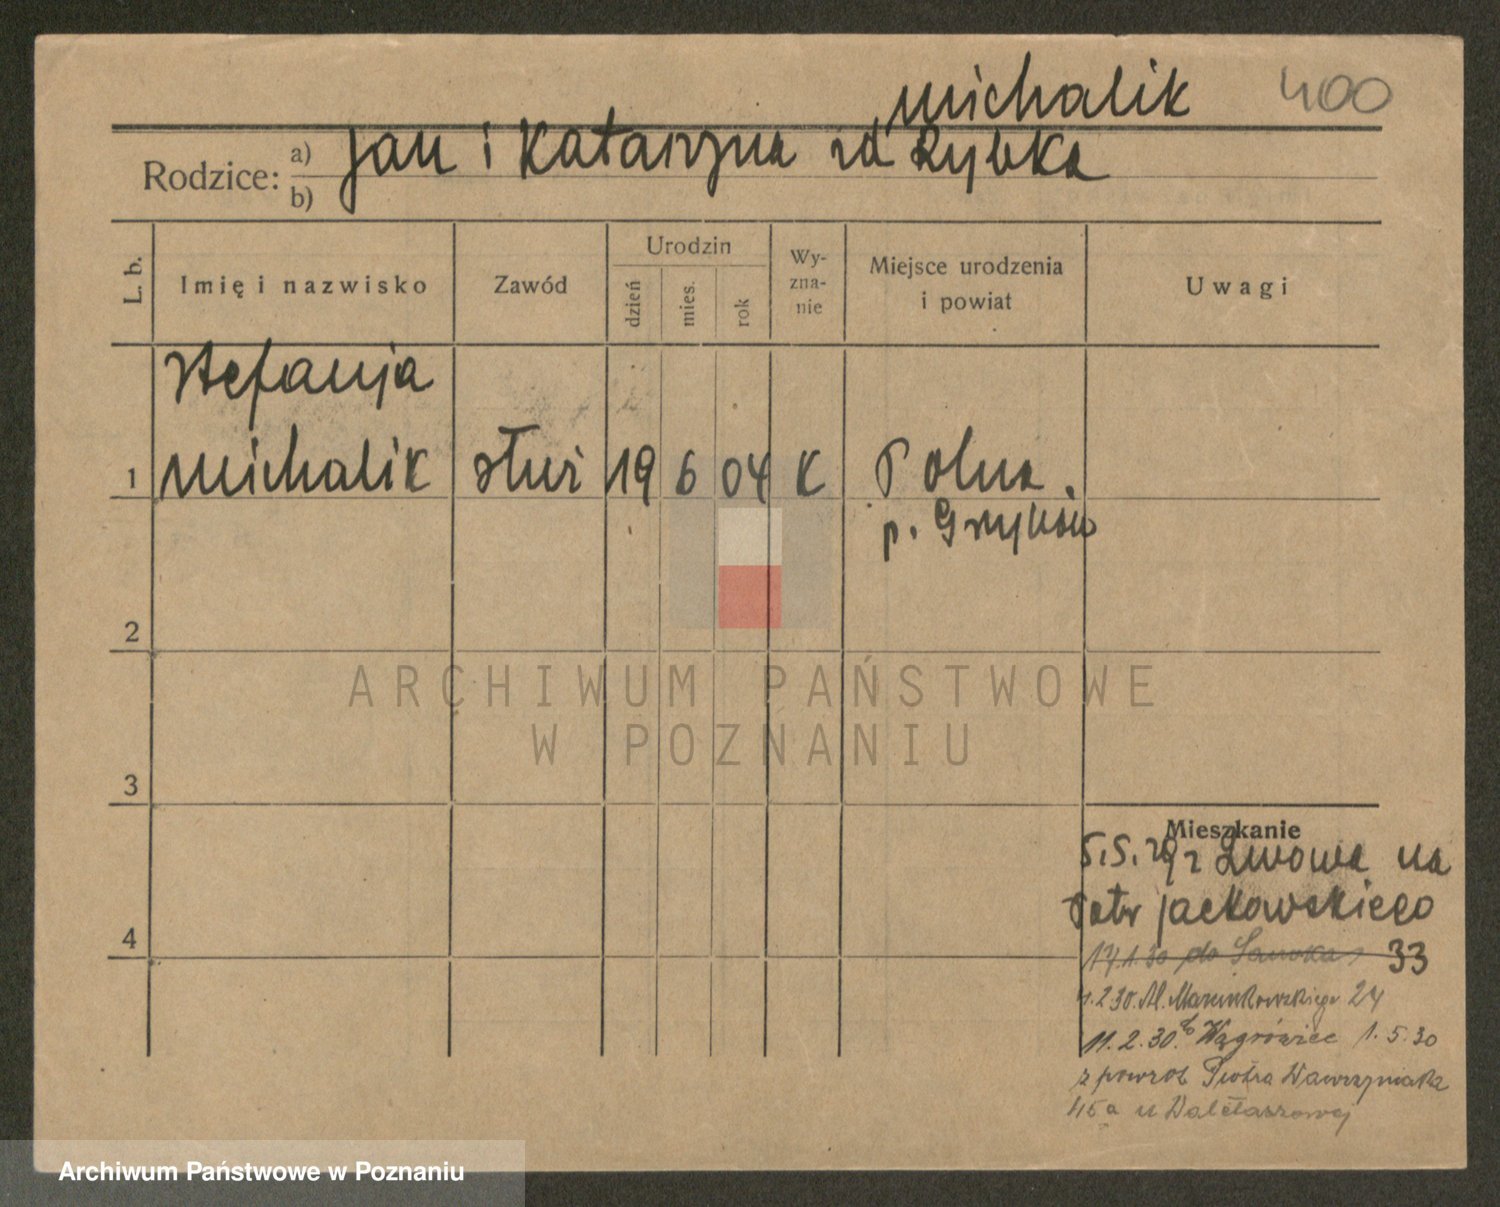 michalik 400
Rodzice: a) b) Jan i Katarzyna zd Rybka
L. b. Imię i nazwisko Zawód Urodzin dzień mies. rok Wy-zna-nie Miejsce urodzenia i powiat Uwagi
Stefanja
1 michalik służ 19 6 04 K Polna.
p. Grybów
2
ARCHIWUM PAŃSTWOWE
W POZNANIU
3
Mieszkanie
5.5.29 z Lwowa na
Patr Jackowskiego
4 17.1.30 do 33
1.2.30. Al. Marcinkowskiego 24
11.2.30. do Wągrówiec 1.5.30
z powrot Piotra Wawrzyniaka
45a u
Archiwum Państwowe w Poznaniu